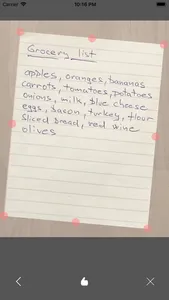 Cancel
10:18 PM
Grocery list
apples, oranges, bananas
carrots, tomatoes, potatoes
onions, milk, blue cheese
eggs, bacon, turkey, flour
sliced bread, red wine
olives